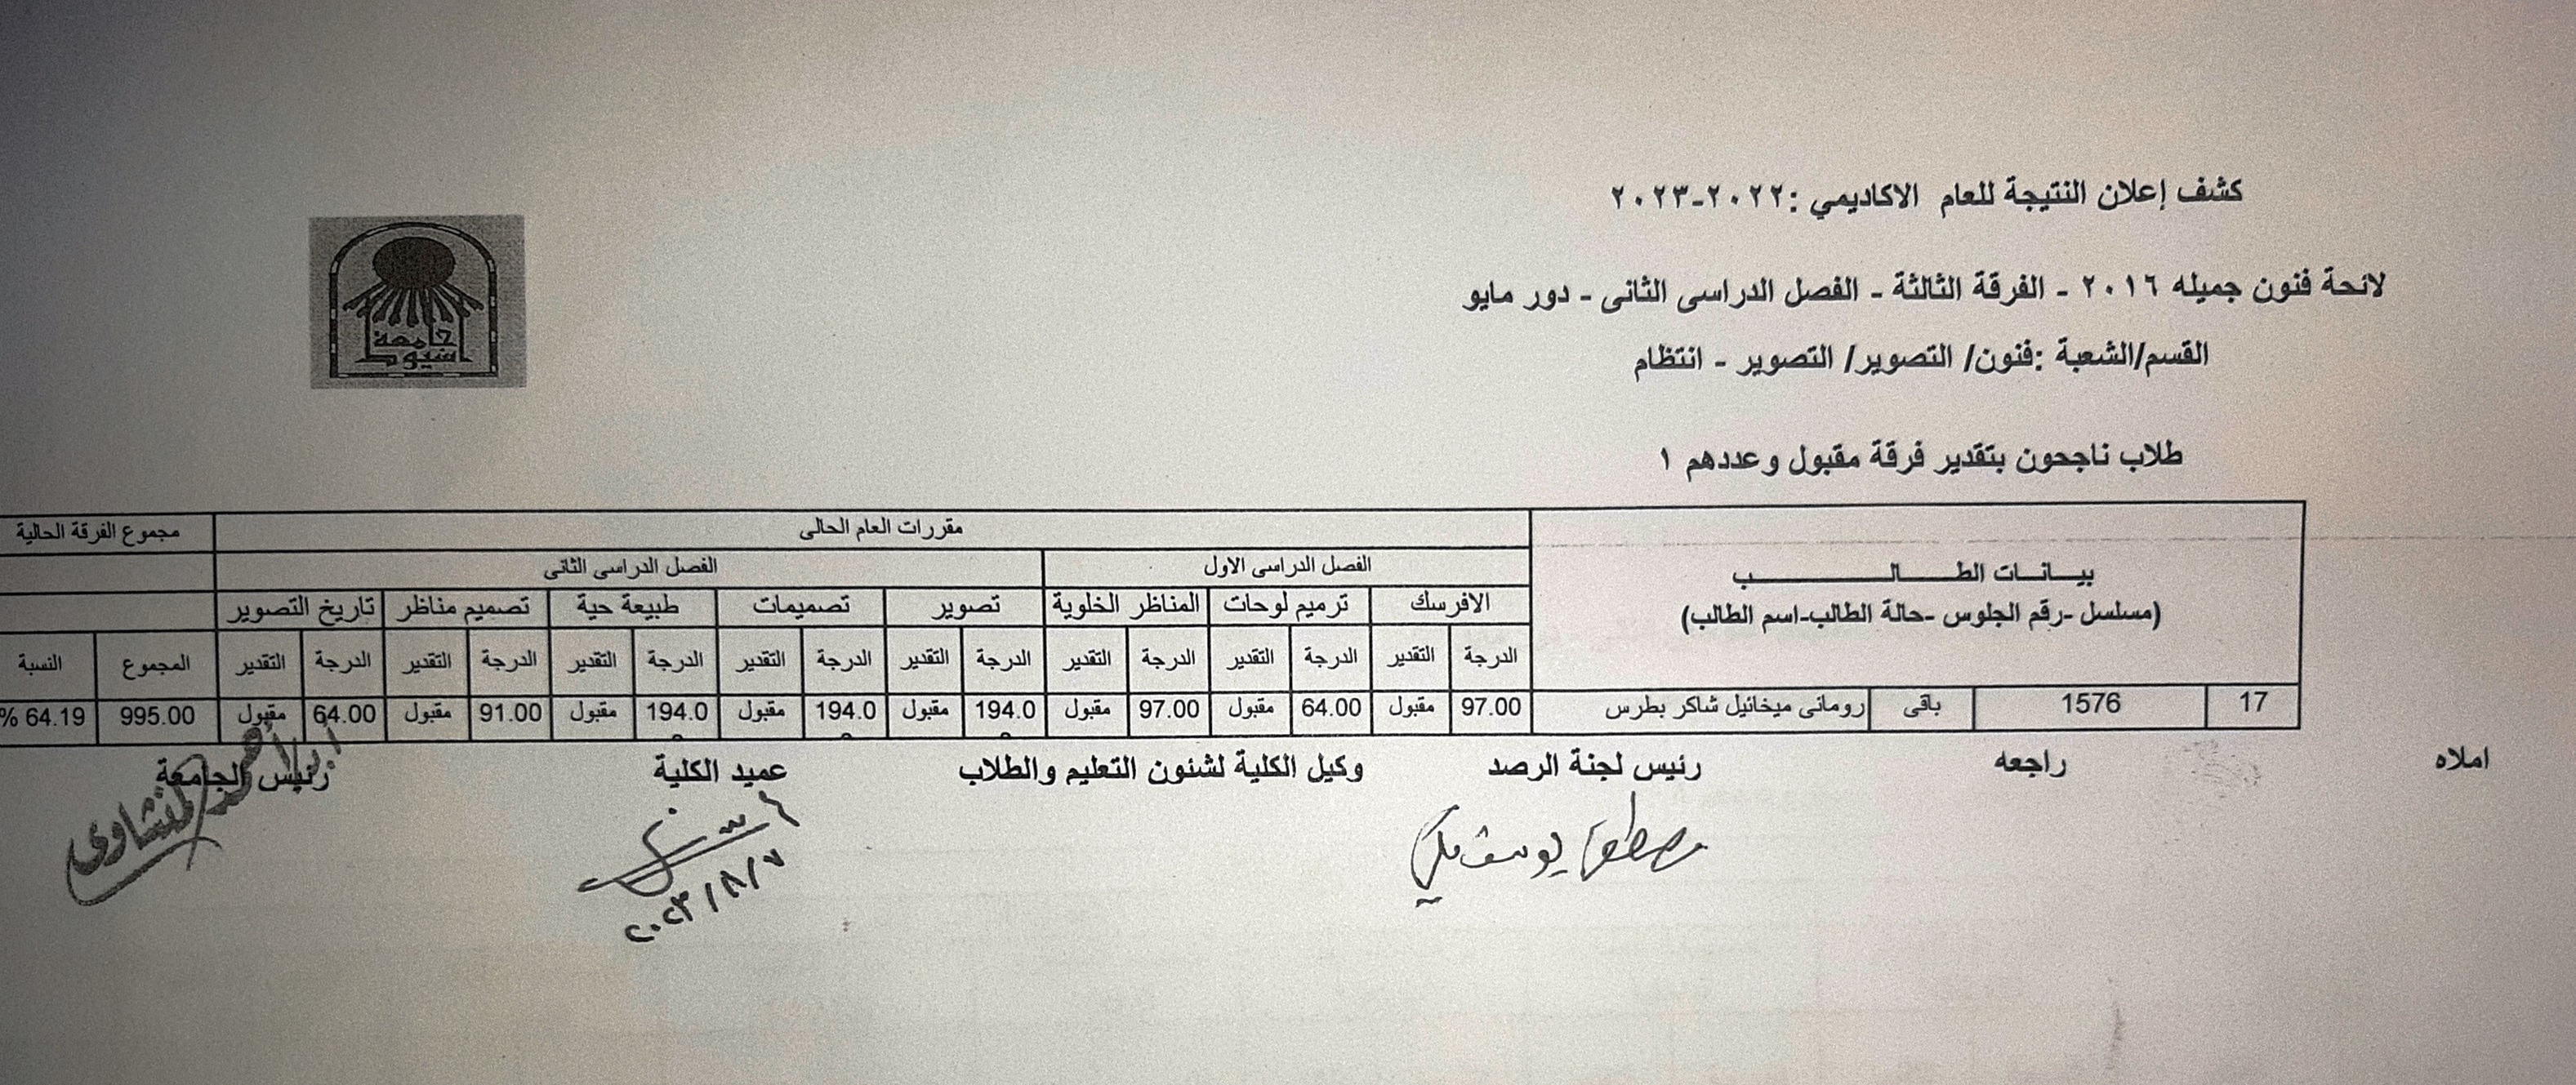 كشف إعلان النتيجة للعام الاكاديمي :٢٠٢٢-٢٠٢٣
جامعة
اسيوط
لائحة فنون جميله ٢٠١٦ - الفرقة الثالثة - الفصل الدراسى الثانى - دور مايو
القسم/الشعبة :فنون/ التصوير/ التصوير - انتظام
طلاب ناجحون بتقدير فرقة مقبول وعددهم ١
بيـــانـــات الطـــــالـــــــــــــب مقررات العام الحالى مجموع الفرقة الحالية
(مسلسل -رقم الجلوس -حالة الطالب-اسم الطالب) الفصل الدراسى الاول الفصل الدراسى الثانى
الافرسك ترميم لوحات المناظر الخلوية تصوير تصميمات طبيعة حية تصميم مناظر تاريخ التصوير
الدرجة التقدير الدرجة التقدير الدرجة التقدير الدرجة التقدير الدرجة التقدير الدرجة التقدير الدرجة التقدير الدرجة التقدير المجموع النسبة
17 1576 باقى رومانى ميخائيل شاكر بطرس 97.00 مقبول 64.00 مقبول 97.00 مقبول 194.0 مقبول 194.0 مقبول 194.0 مقبول 91.00 مقبول 64.00 مقبول 995.00 64.19 %
املاه راجعه رئيس لجنة الرصد وكيل الكلية لشئون التعليم والطلاب عميد الكلية رئيس الجامعة
مصطفى يوسف أحمد المنشاوى
٢٠٢٣/٨/٧